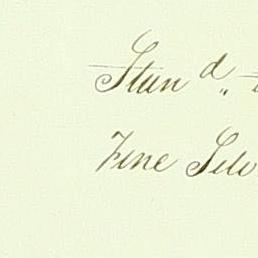 Stan d
Fine Silv